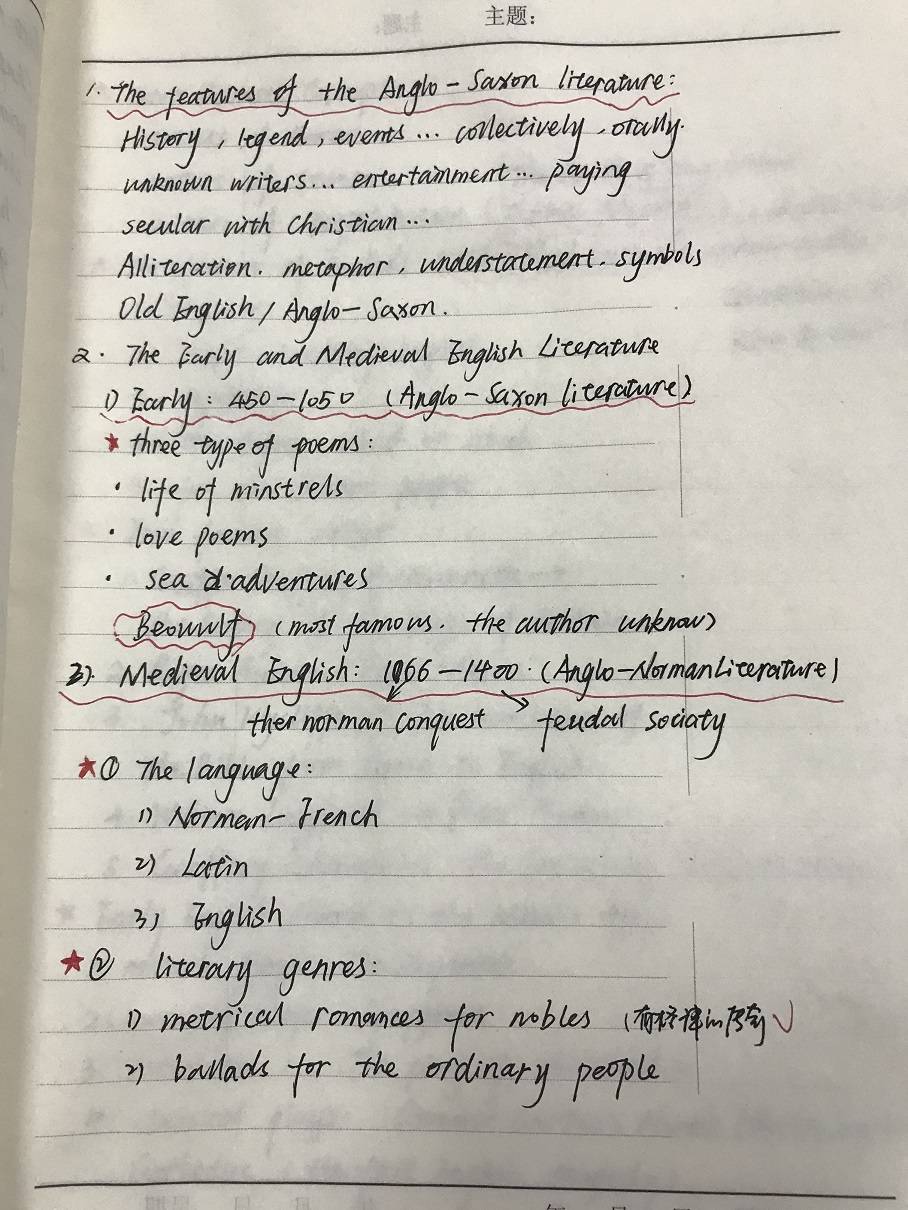 主题:
1. The features of the Anglo-Saxon literature:
History, legend, events... collectively, orally.
unknown writers... entertainment... paying
secular with Christian...
Alliteration. metaphor, understatement. symbols
Old English / Anglo-Saxon.
2. The Early and Medieval English Literature
1) Early: 450-1050 (Anglo-Saxon literature)
★ three type of poems:
· life of minstrels
· love poems
· sea adventures
Beowulf (most famous. the author unknow)
3). Medieval English: 1066-1400. (Anglo-Norman Literature)
ther norman conquest → feudal sociaty
★① The language:
1) Norman-French
2) Latin
3) English
★② literary genres:
1) metrical romances for nobles (有格律的传奇)
2) ballads for the ordinary people